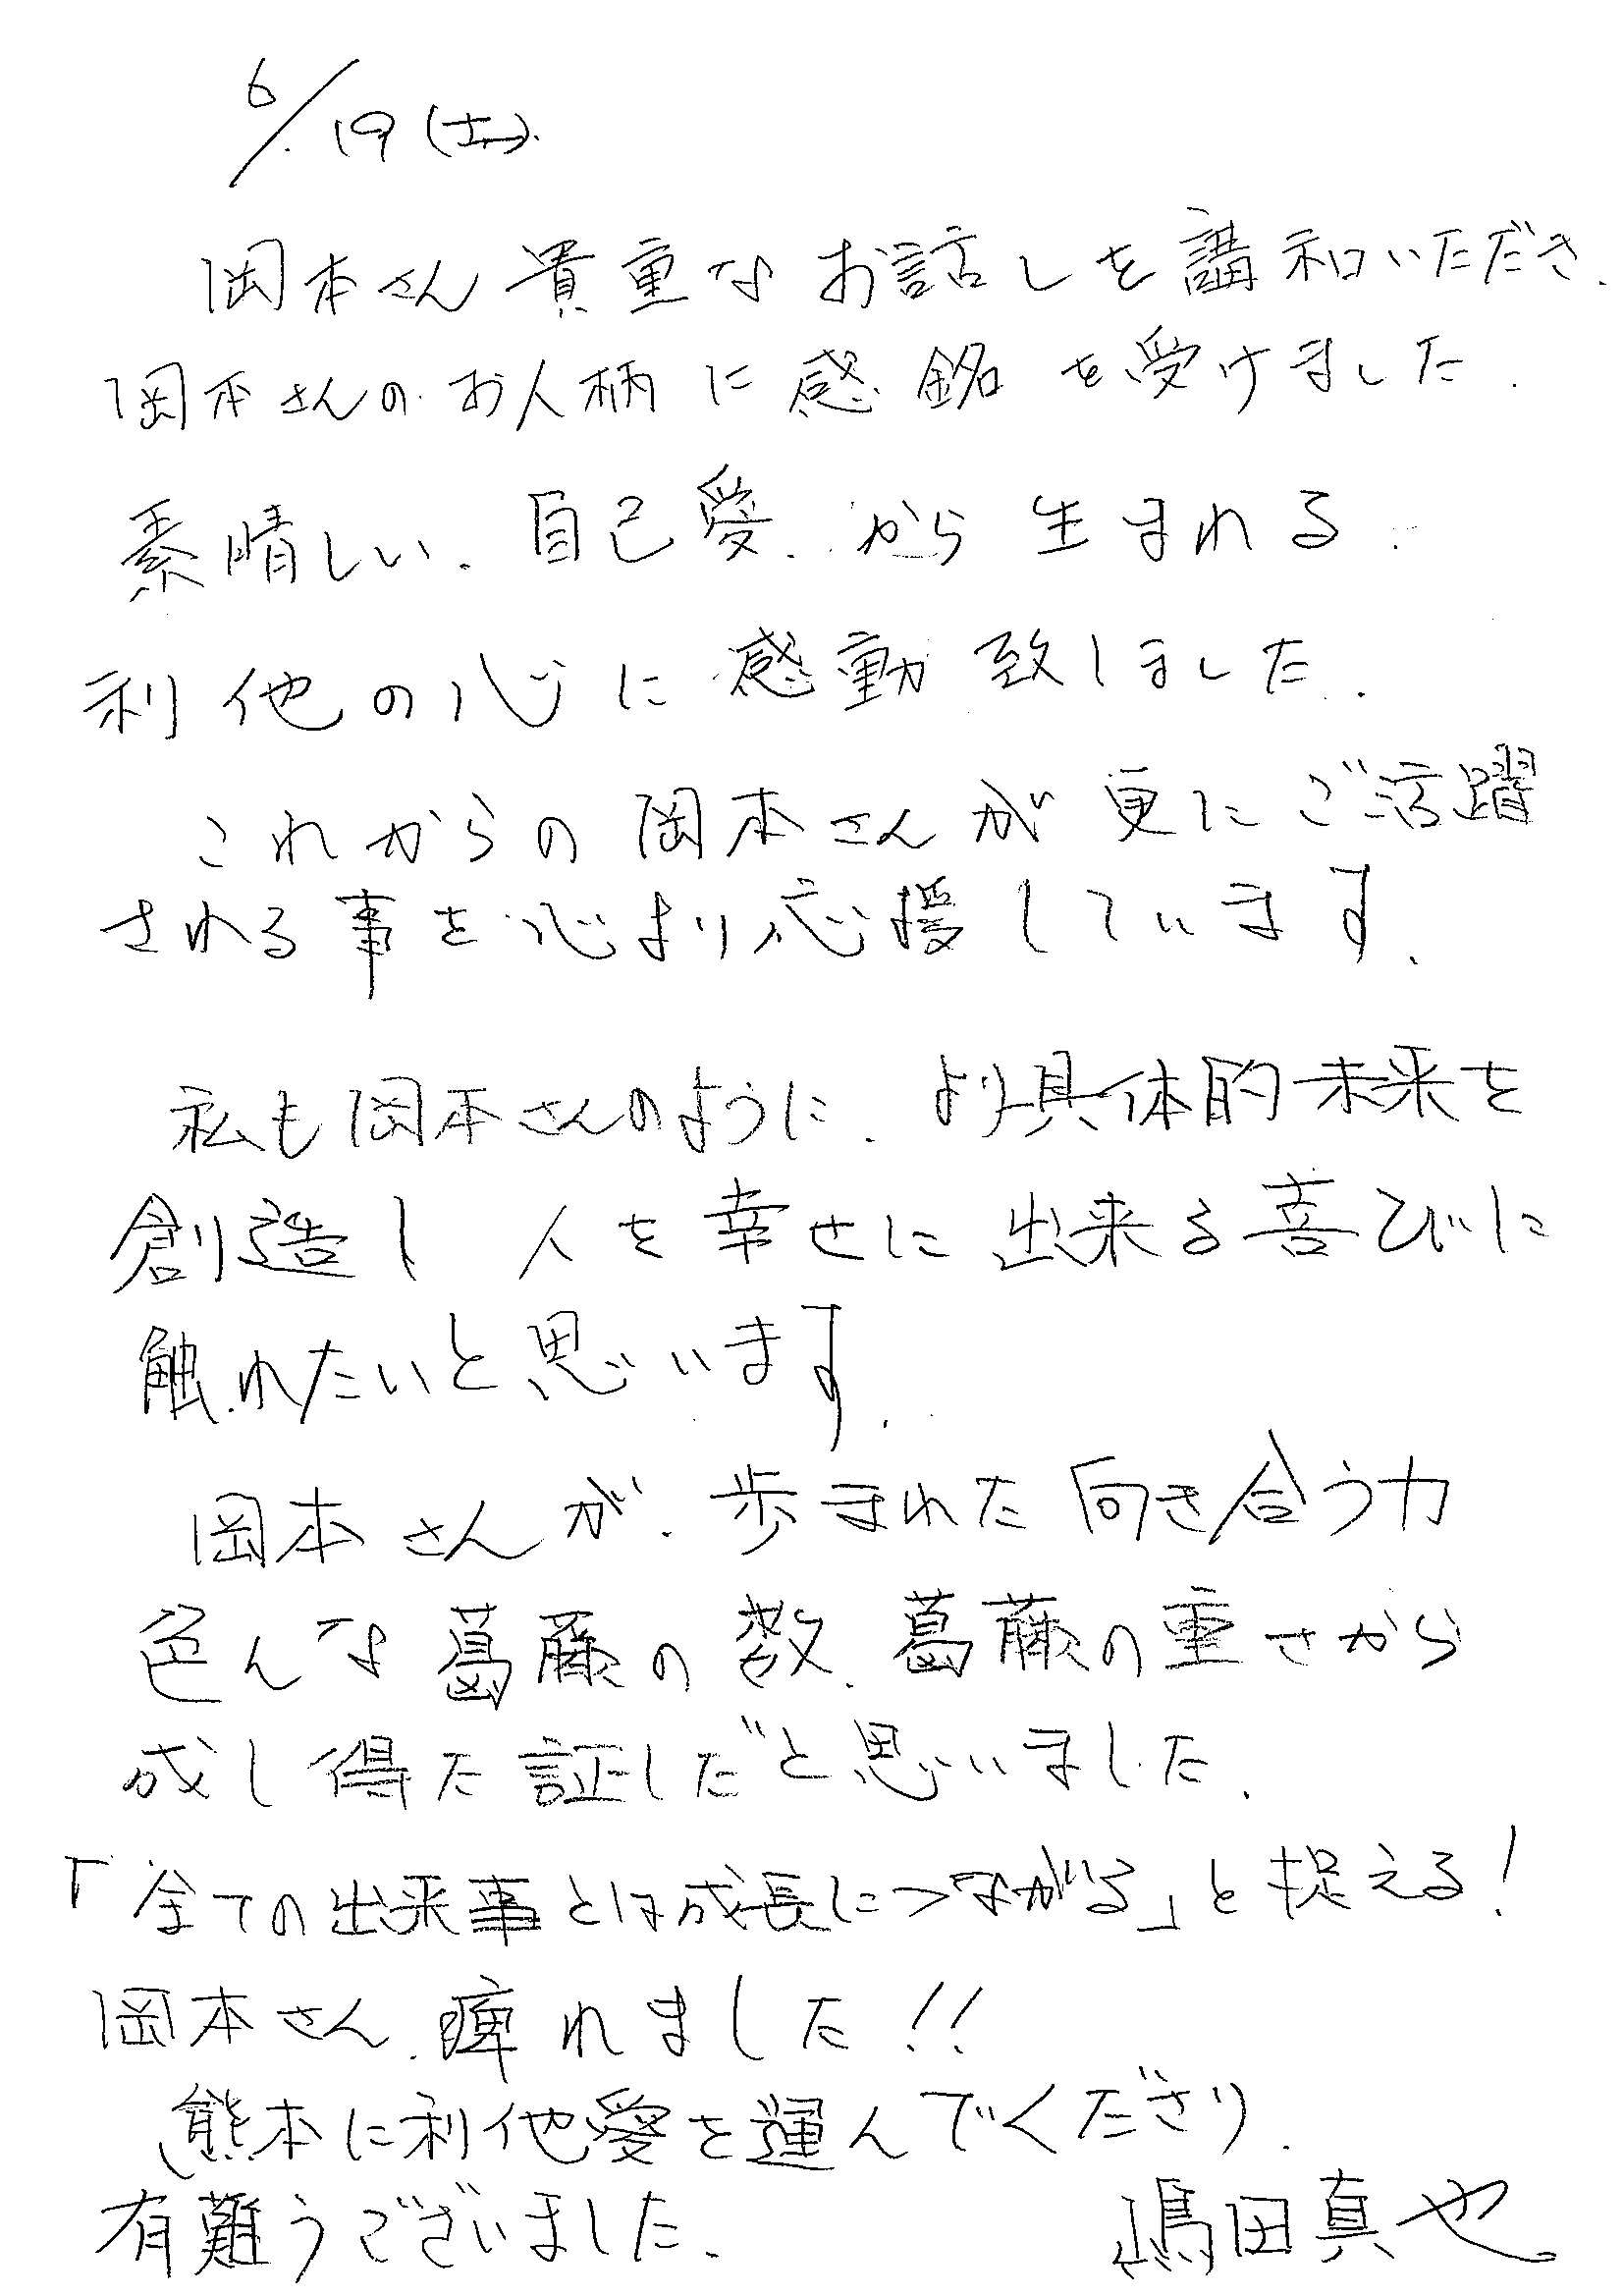 6/19(土).
岡本さん貴重なお話しを講和いただき、
岡本さんのお人柄に感銘を受けました.
素晴しい、自己愛、から生まれる
利他の心に感動致しました、
これからの岡本さんが更にご活躍
される事を心より応援しています、
私も岡本さんのように、より具体的未来を
創造し 人を幸せに出来る喜びに
触れたいと思います、
岡本さんが、歩まれた向き合う力
色んな葛藤の数、葛藤の重さから
成し得た証しだと思いました、
「全ての出来事とは成長につながる」と捉える!
岡本さん、痺れました!!
熊本に利他愛を運んでくださり、
有難うございました、
嶋田真也